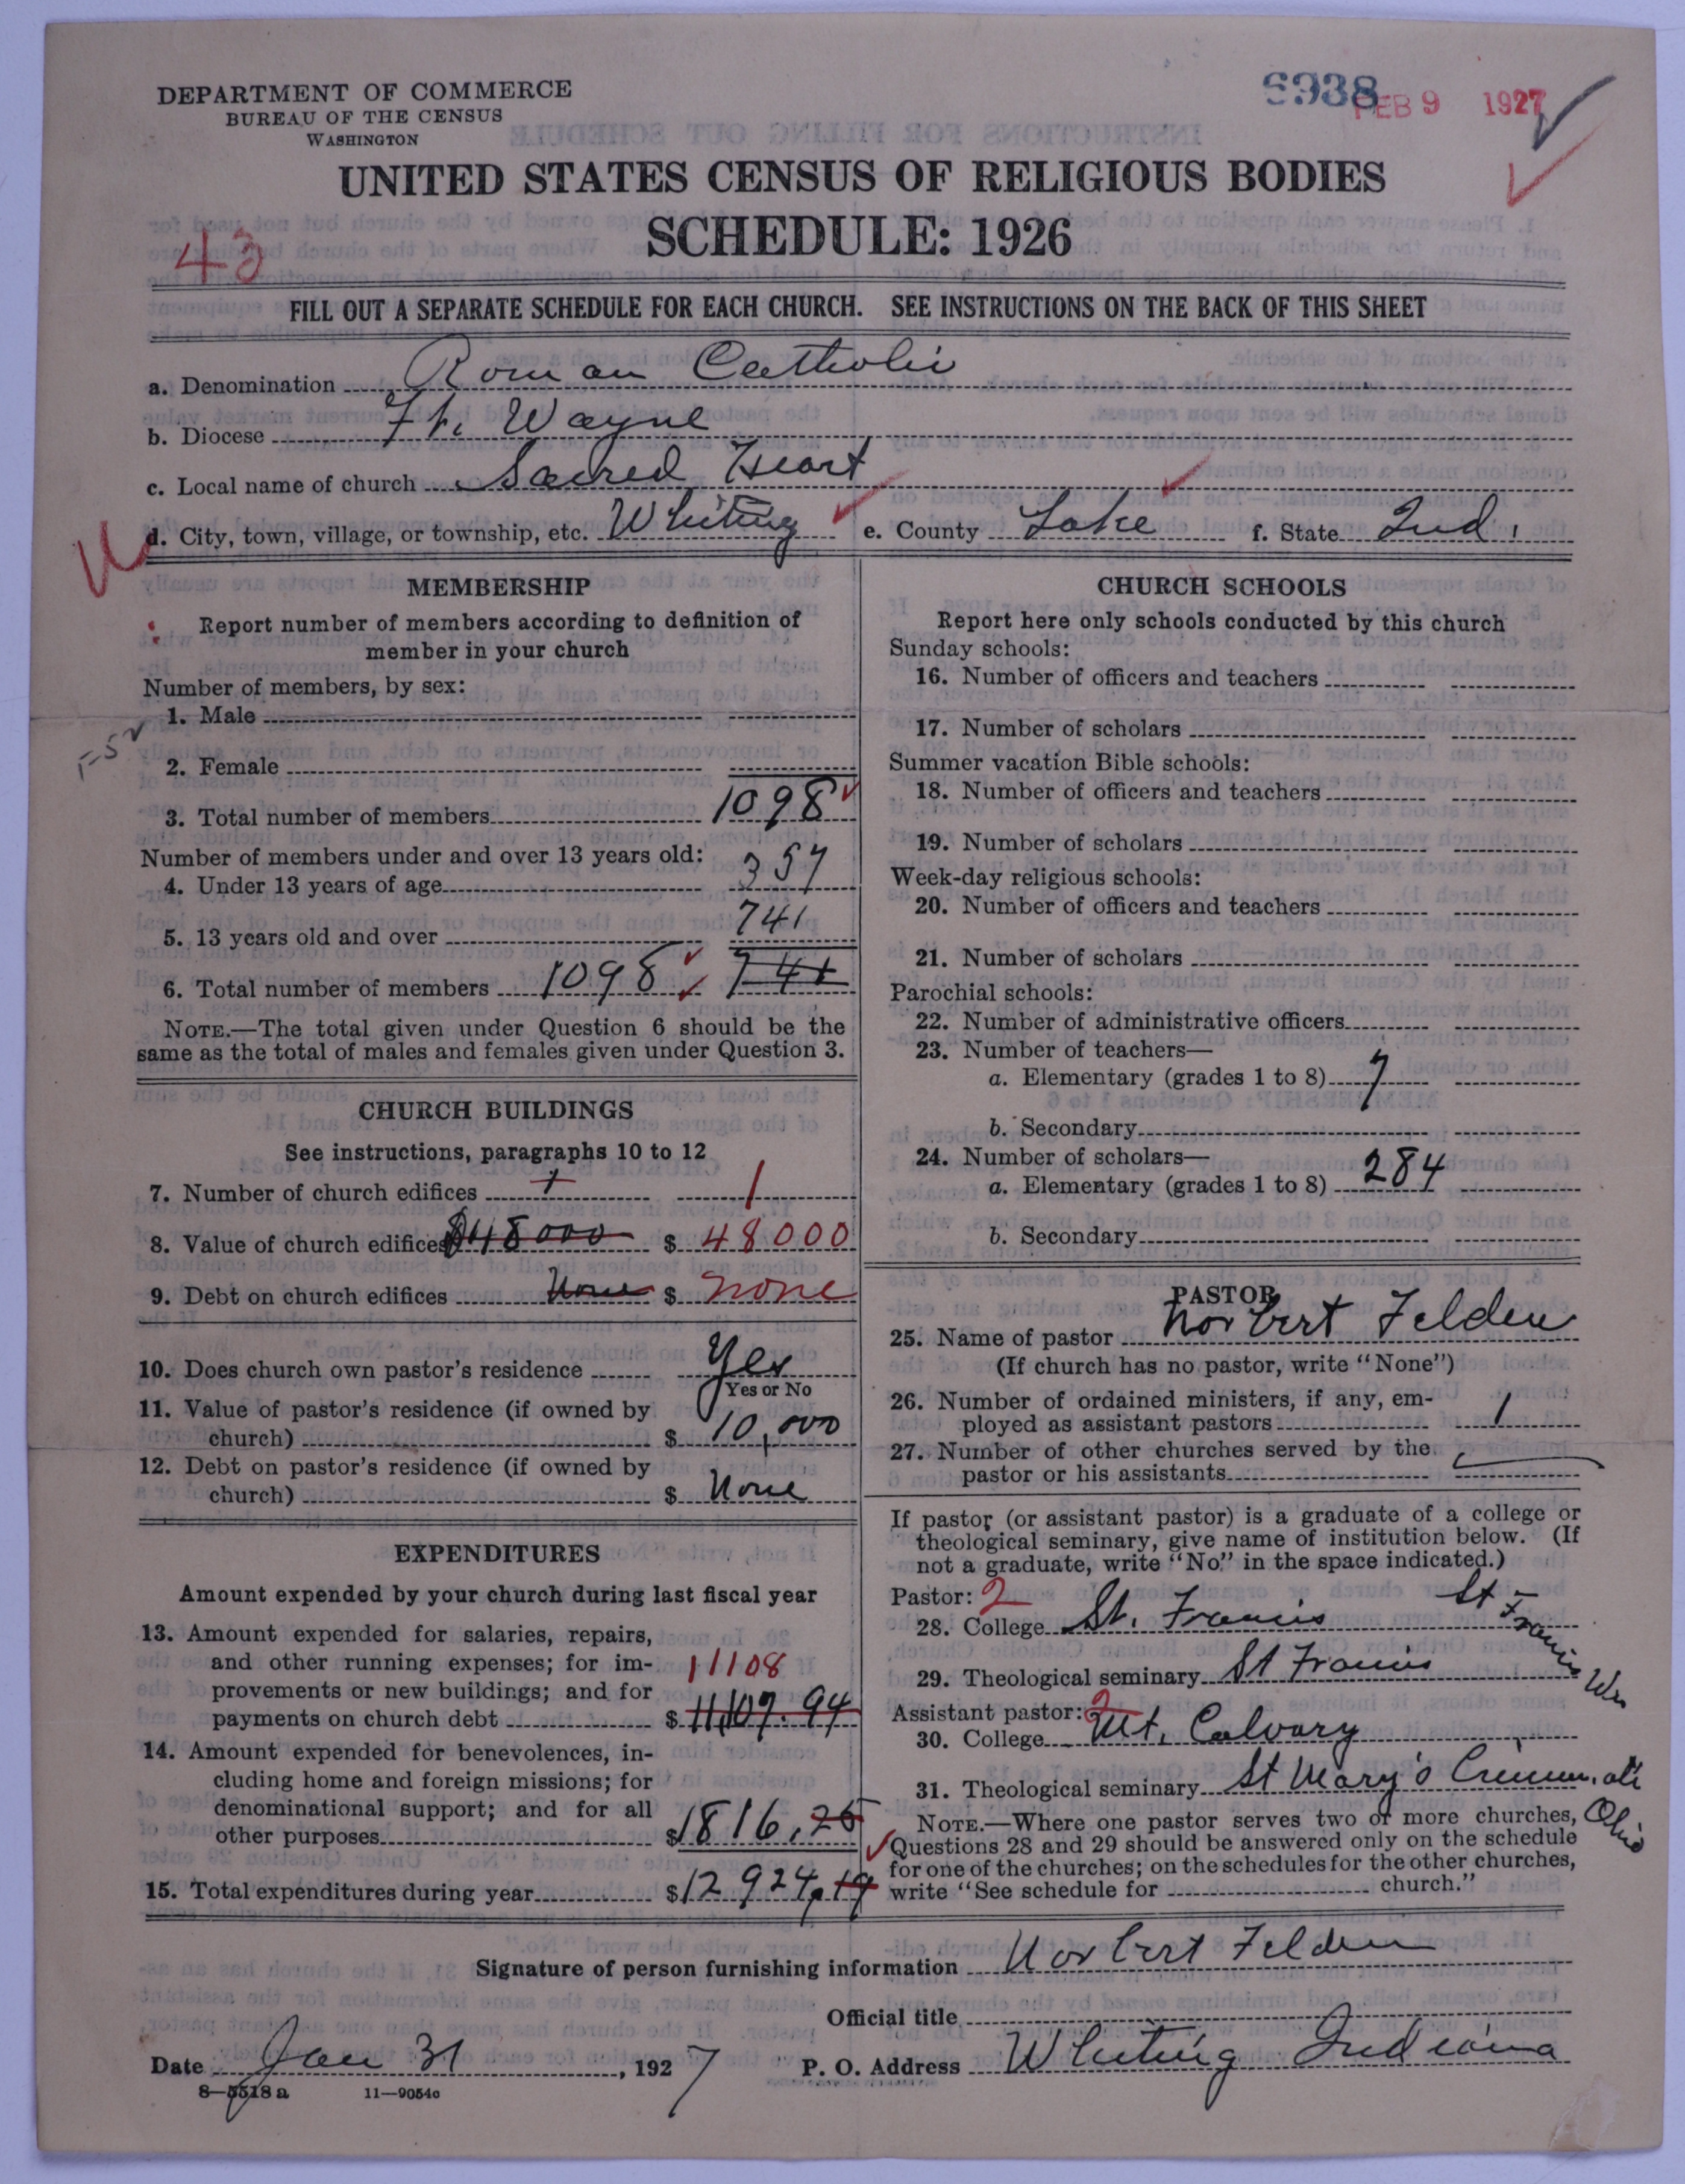 DEPARTMENT OF COMMERCE
BUREAU OF THE CENSUS
WASHINGTON
6938
FEB 9 1927
UNITED STATES CENSUS OF RELIGIOUS BODIES
SCHEDULE: 1926
43
FILL OUT A SEPARATE SCHEDULE FOR EACH CHURCH. SEE INSTRUCTIONS ON THE BACK OF THIS SHEET
a. Denomination Roman Catholic
b. Diocese Ft. Wayne
c. Local name of church Sacred Heart
d. City, town, village, or township, etc. Whiting e. County Lake f. State Ind.
MEMBERSHIP
Report number of members according to definition of
member in your church
Number of members, by sex:
1. Male
2. Female
3. Total number of members 1098
Number of members under and over 13 years old:
4. Under 13 years of age 357
5. 13 years old and over 741
6. Total number of members 1098 741
NOTE.—The total given under Question 6 should be the
same as the total of males and females given under Question 3.
CHURCH BUILDINGS
See instructions, paragraphs 10 to 12
7. Number of church edifices 1 1
8. Value of church edifices $48000 $ 48000
9. Debt on church edifices None $ none
10. Does church own pastor's residence Yes
Yes or No
11. Value of pastor's residence (if owned by
church) $ 10,000
12. Debt on pastor's residence (if owned by
church) $ None
EXPENDITURES
Amount expended by your church during last fiscal year
13. Amount expended for salaries, repairs,
and other running expenses; for im- 11108
provements or new buildings; and for
payments on church debt $ 11,107.94
14. Amount expended for benevolences, in-
cluding home and foreign missions; for
denominational support; and for all
other purposes $ 1816,25
15. Total expenditures during year $ 12924.19
CHURCH SCHOOLS
Report here only schools conducted by this church
Sunday schools:
16. Number of officers and teachers
17. Number of scholars
Summer vacation Bible schools:
18. Number of officers and teachers
19. Number of scholars
Week-day religious schools:
20. Number of officers and teachers
21. Number of scholars
Parochial schools:
22. Number of administrative officers
23. Number of teachers—
a. Elementary (grades 1 to 8) 7
b. Secondary
24. Number of scholars—
a. Elementary (grades 1 to 8) 284
b. Secondary
PASTOR
25. Name of pastor Norbert Felden
(If church has no pastor, write "None")
26. Number of ordained ministers, if any, em-
ployed as assistant pastors 1
27. Number of other churches served by the
pastor or his assistants
If pastor (or assistant pastor) is a graduate of a college or
theological seminary, give name of institution below. (If
not a graduate, write "No" in the space indicated.)
Pastor: 2
28. College St. Francis St Francis Wis
29. Theological seminary St Francis
Assistant pastor: 2
30. College Mt. Calvary
31. Theological seminary St Mary's Cincinnati Ohio
NOTE.—Where one pastor serves two or more churches,
Questions 28 and 29 should be answered only on the schedule
for one of the churches; on the schedules for the other churches,
write "See schedule for church."
Signature of person furnishing information Norbert Felden
Official title
Date Jan 31, 1927 P. O. Address Whiting Indiana
8—5518 a 11—9054c